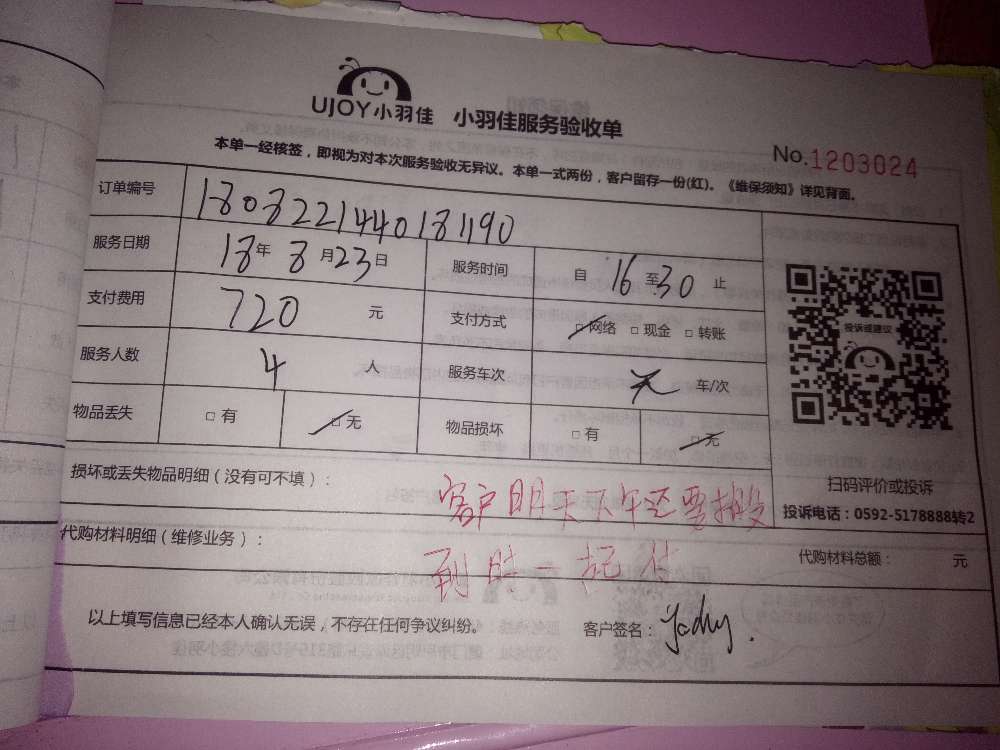 UJOY小羽佳 小羽佳服务验收单
No.1203024
本单一经核签，即视为对本次服务验收无异议。本单一式两份，客户留存一份(红)。《维保须知》详见背面。
订单编号 1808221440181190
服务日期 18年 8月23日 服务时间 自 16 至 30 止
支付费用 720 元 支付方式 □网络 □现金 □转账
服务人数 4 人 服务车次 无 车/次
物品丢失 □有 □无 物品损坏 □有 □无
投诉或建议
扫码评价或投诉
投诉电话：0592-5178888转2
损坏或丢失物品明细（没有可不填）：
客户明天下午还要搬
代购材料明细（维修业务）：
到时一起付
代购材料总额： 元
以上填写信息已经本人确认无误，不存在任何争议纠纷。 客户签名：